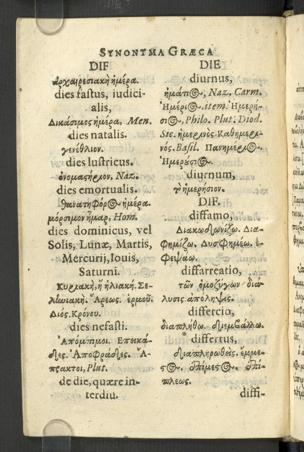 SYNONYMA GRÆCA
DIF
ἀρχαιρεσιακὴ ἡμέρα.
dies fastus, iudici-
alis,
Δικάσιμες ἡμέρα, Men.
dies natalis.
γενέθλιον.
dies lustricus.
ὀνομαστήριον. Naz.
dies emortualis.
ἡμέρα.
μόρσιμον ἦμαρ, Hom.
dies dominicus, vel
Solis, Lunæ, Martis,
Mercurij, Iouis,
Saturni.
Κυριακὴ, ἢ ἡλιακή. Σε-
ληνιακή. Ἄρεως. ἑρμοῦ.
Διός. Κρόνου.
dies nefasti.
Ἀπόμπιμοι. Ἐπεικά-
δες. Ἀποφράδες. Ἄ-
πρακτοι, Plut.
de die, quære in-
terdiu.
DIE
diurnus,
Naz. Carm.
item.
Philo. Plut. Diod.
Sic. ἡμερινός. Καθημερι-
νός. Basil.
diurnum,
τὸ ἡμερήσιον.
DIF.
diffamo,
Διακωδωνίζω. Δια-
φημίζω. Δυσφημέω.
diffarreatio,
τῶν ὁμοζύγων διά-
λυσις
differcio,
διαπλήθω.
differtus,
διαπληρωθεὶς.
πλεως.
diffi-